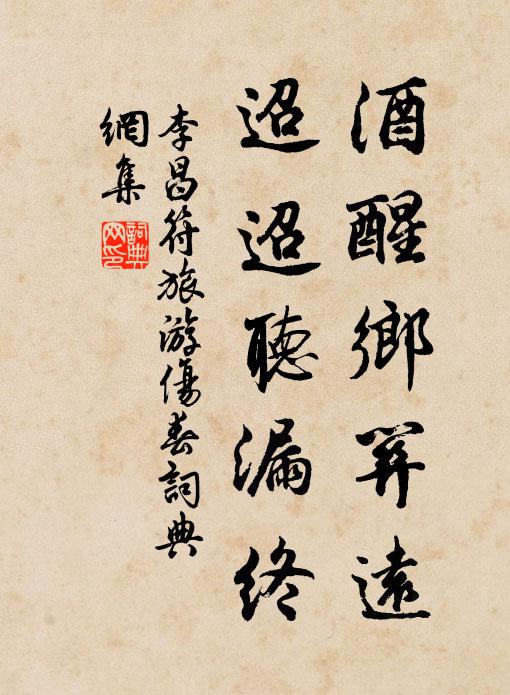 酒醒鄉關遠
迢迢聽漏終
李昌符旅游傷春詞典
網集
詞典
网印